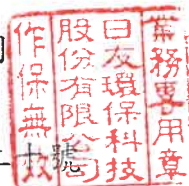 業務專用章
日友環保科技
股份有限公司
作保無效
號